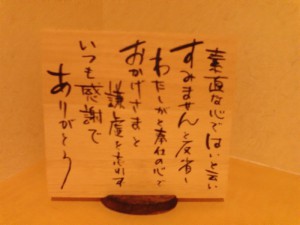 素直な心ではいと云い
すみませんと反省し
わたしがと奉仕の心で
おかげさまと
謙虚を忘れず
いつも感謝で
ありがとう